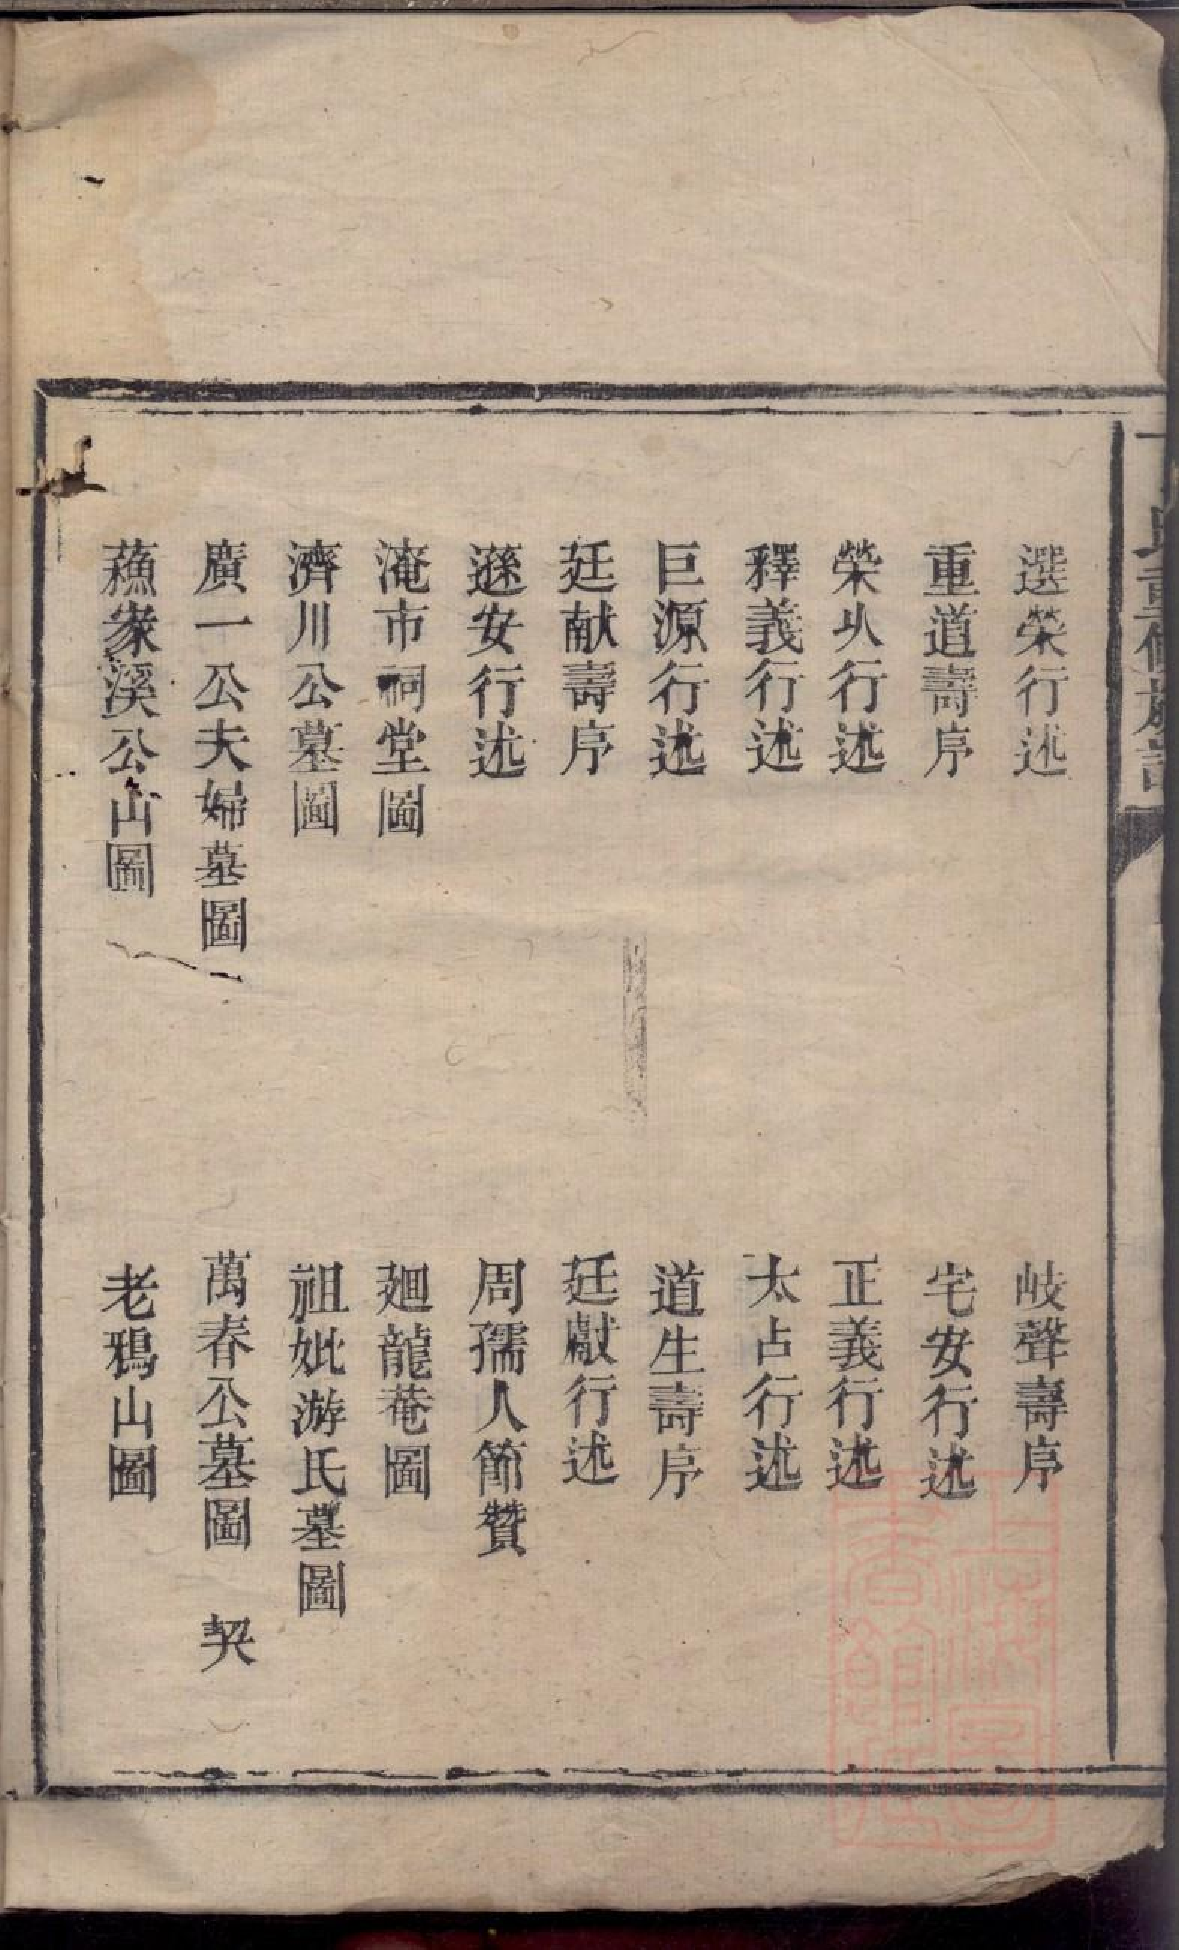 選榮行述　岐聲壽序
重道壽序　宅安行述
榮㠯行述　正義行述
釋義行述　太占行述
巨源行述　道生壽序
廷献壽序　廷獻行述
遜安行述　周孺人節贊
淹市祠堂圖　廻龍菴圖
濟川公墓圖　祖妣游氏墓圖
廣一公夫婦墓圖　萬春公墓圖　契
蕉寮溪公山圖　老鴉山圖
上海圖書館藏